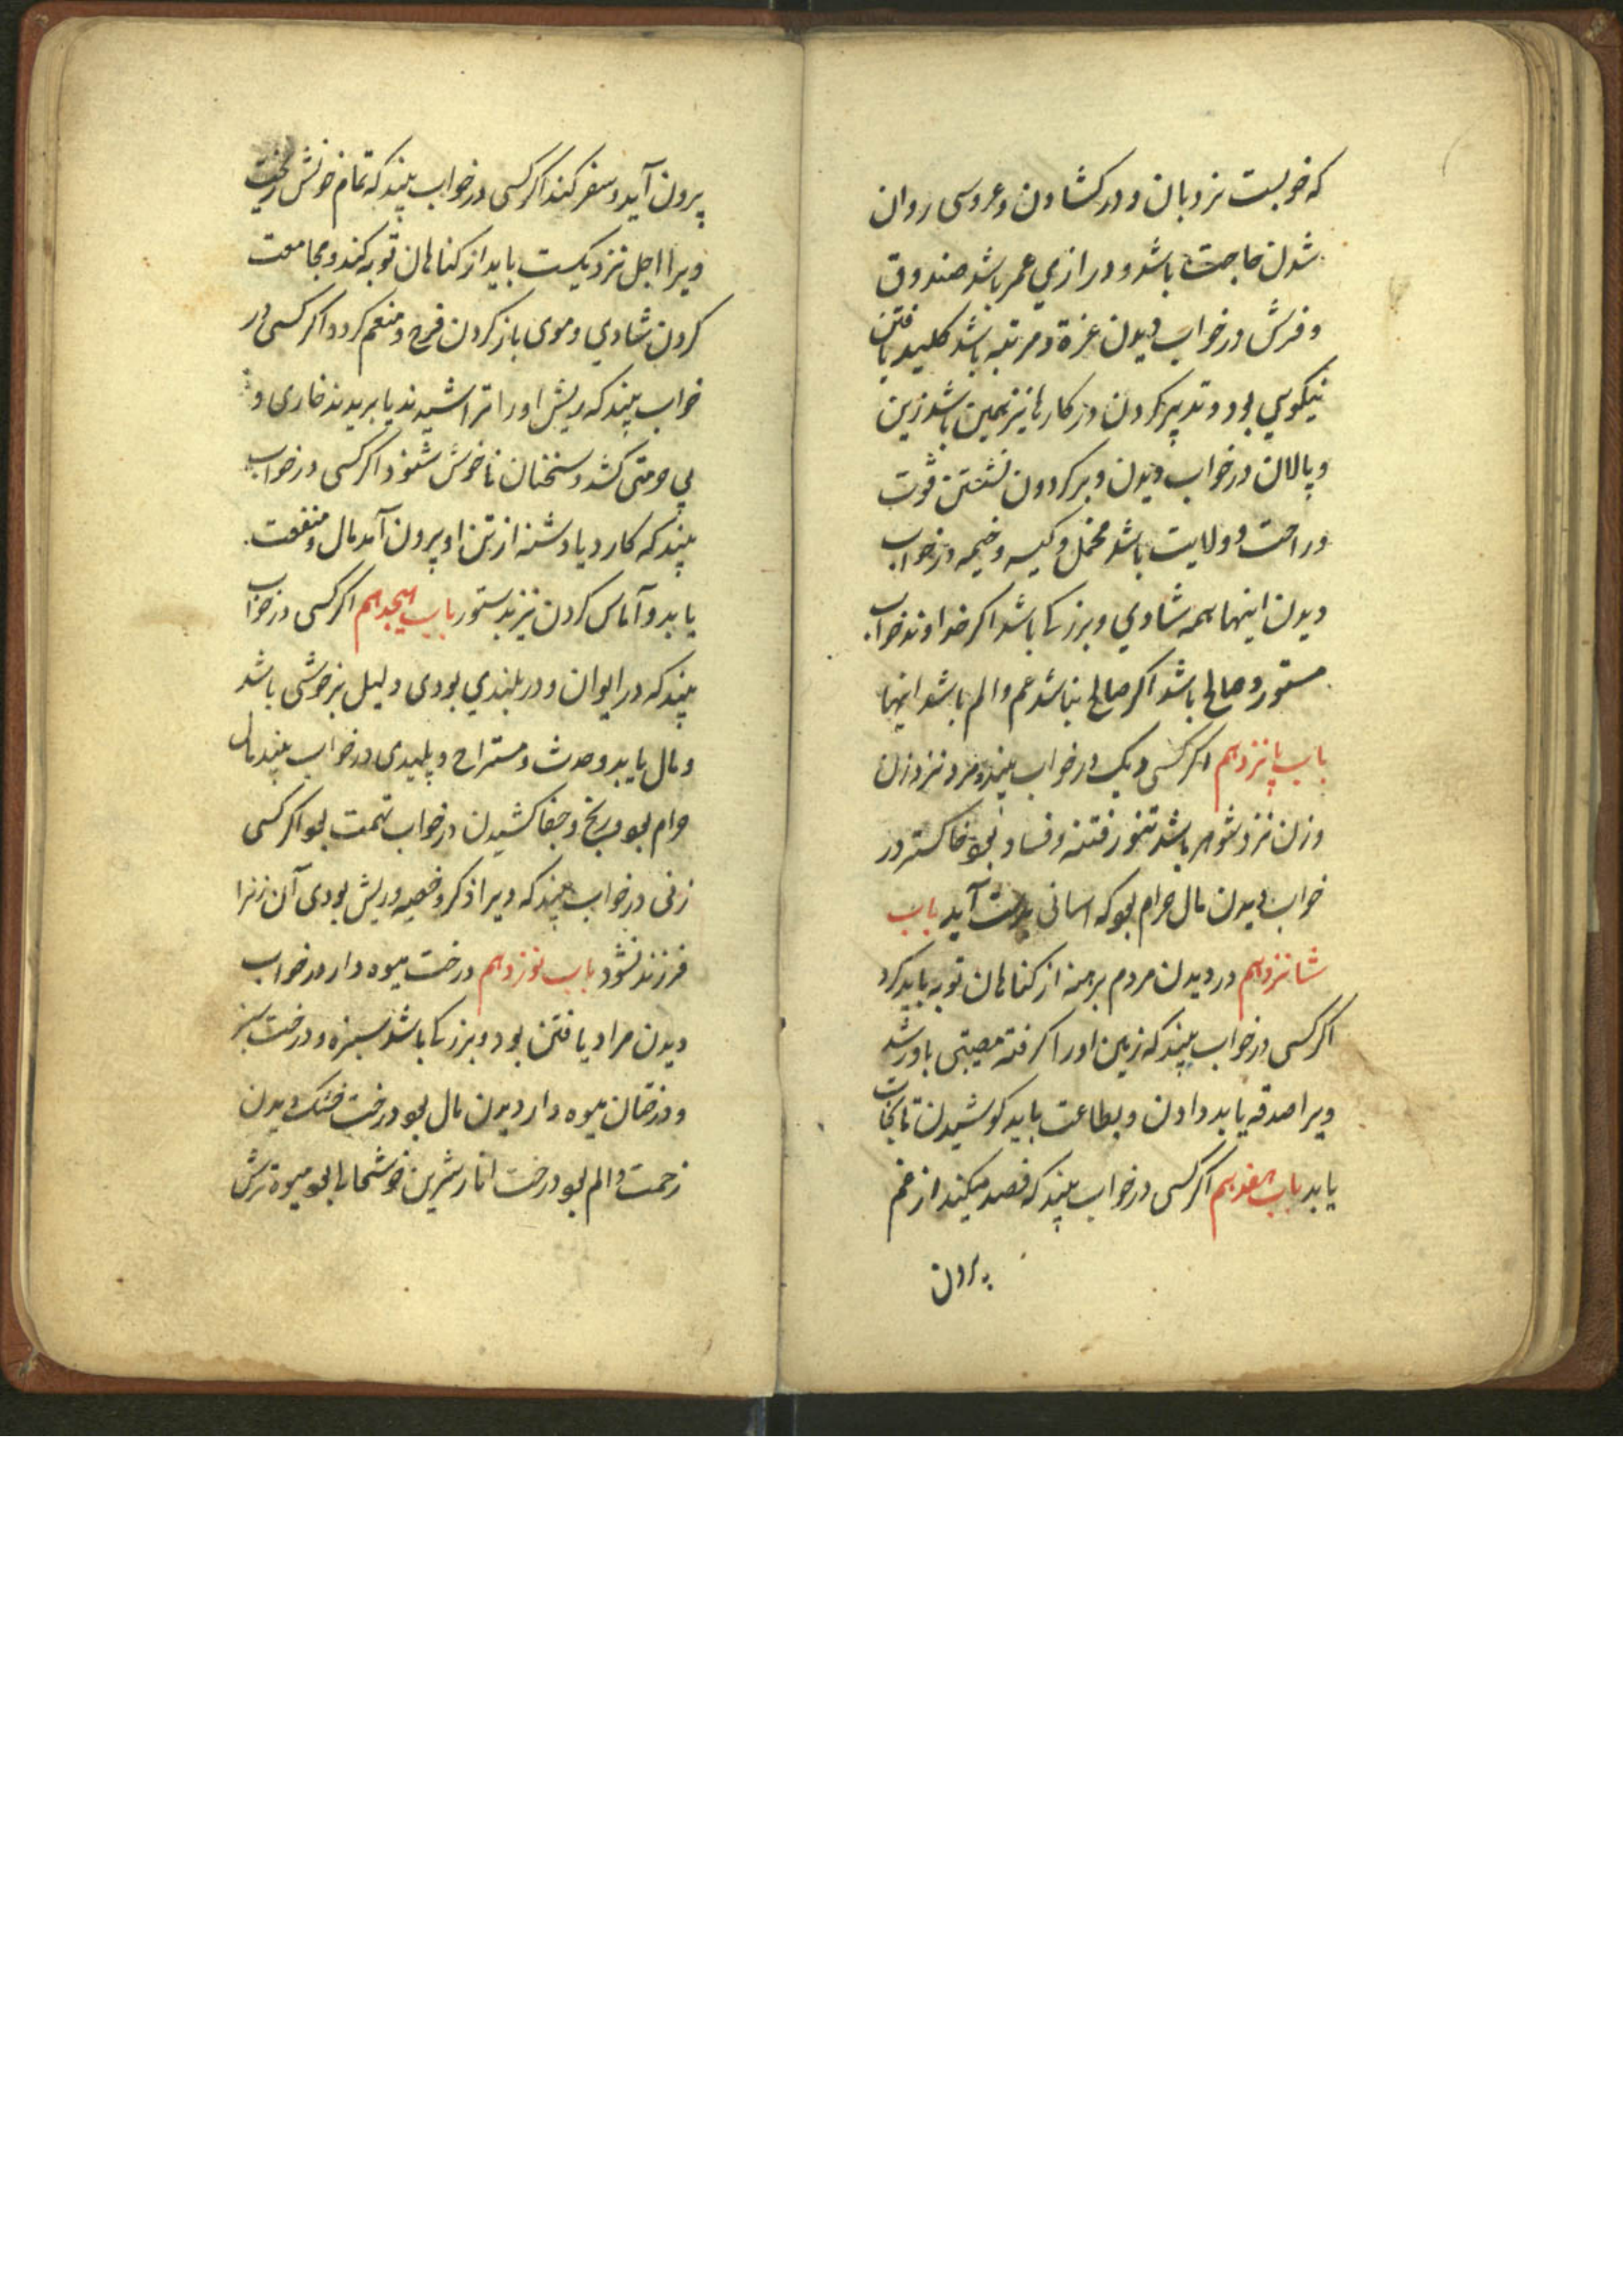 که خوبست نردبان و در کشادن و عروسی روان
شدن حاجت باشد و درازی عمر باشد صندوق
و فرش در خواب دیدن عزة و مرتبه باشد کلید یافتن
نیکویی بود و تدبیر کردن در کارها نیز همین باشد زین
و پالان در خواب دیدن و بر کردون نشستن قوت
و راحت و ولایت باشد محمل و کیسه و خیمه در خواب
دیدن اینها همه شادی و بزرکی باشد اکر خداوند خواب
مستور و صالح باشد اکر صالح نباشد غم و الم باشد اینها
باب پانزدهم اکر کسی دیک در خواب بیند مرد نزد زن
و زن نزد شوهر باشد تنور فتنه و فساد بود خاکستر در
خواب دیدن مال حرام بود که اسانی بدست آید باب
شانزدهم در دیدن مردم برهنه از کناهان توبه باید کرد
اکر کسی در خواب بیند که زمین اورا کرفته مصیبتی باو رسد
ویرا صدقه باید دادن و بطاعت باید کوشیدن تا نجات
یابد باب هفدهم اکر کسی در خواب بیند که فصد میکند از غم
بیرون
بیرون آید و سفر کند اکر کسی در خواب بیند که تمام خونش ریخت
ویرا اجل نزدیکست باید از کناهان توبه کند و مجامعت
کردن شادی و موی باز کردن فرح و منعم کردد اکر کسی در
خواب بیند که ریش اورا تراشیدند یا بریدند خاری و
بی حرمتی کشد و سخنان ناخوش شنود اکر کسی در خواب
بیند که کارد یا دشنه از تن او بیرون آمد مال و منفعت
یابد و آماس کردن نیز بدستور باب هیجدهم اکر کسی در خواب
بیند که در ایوان و در بلندی بودی دلیل بر خوشی باشد
و مال یابد و حدث و مستراح و پلیدی در خواب بیند مال
حرام بود و رنج و جفا کشیدن در خواب تهمت بود اکر کسی
زنی در خواب بیند که ویرا ذکر و خصیه و ریش بودی آن زنرا
فرزند نشود باب نوزدهم درخت میوه دار در خواب
دیدن مراد یافتن بود و بزرکی باشد سبزه و درخت سبز
و درختان میوه دار دیدن مال بود درخت خشک دیدن
زحمت و الم بود درخت انار شیرین خوشحالی بود میوه ترش